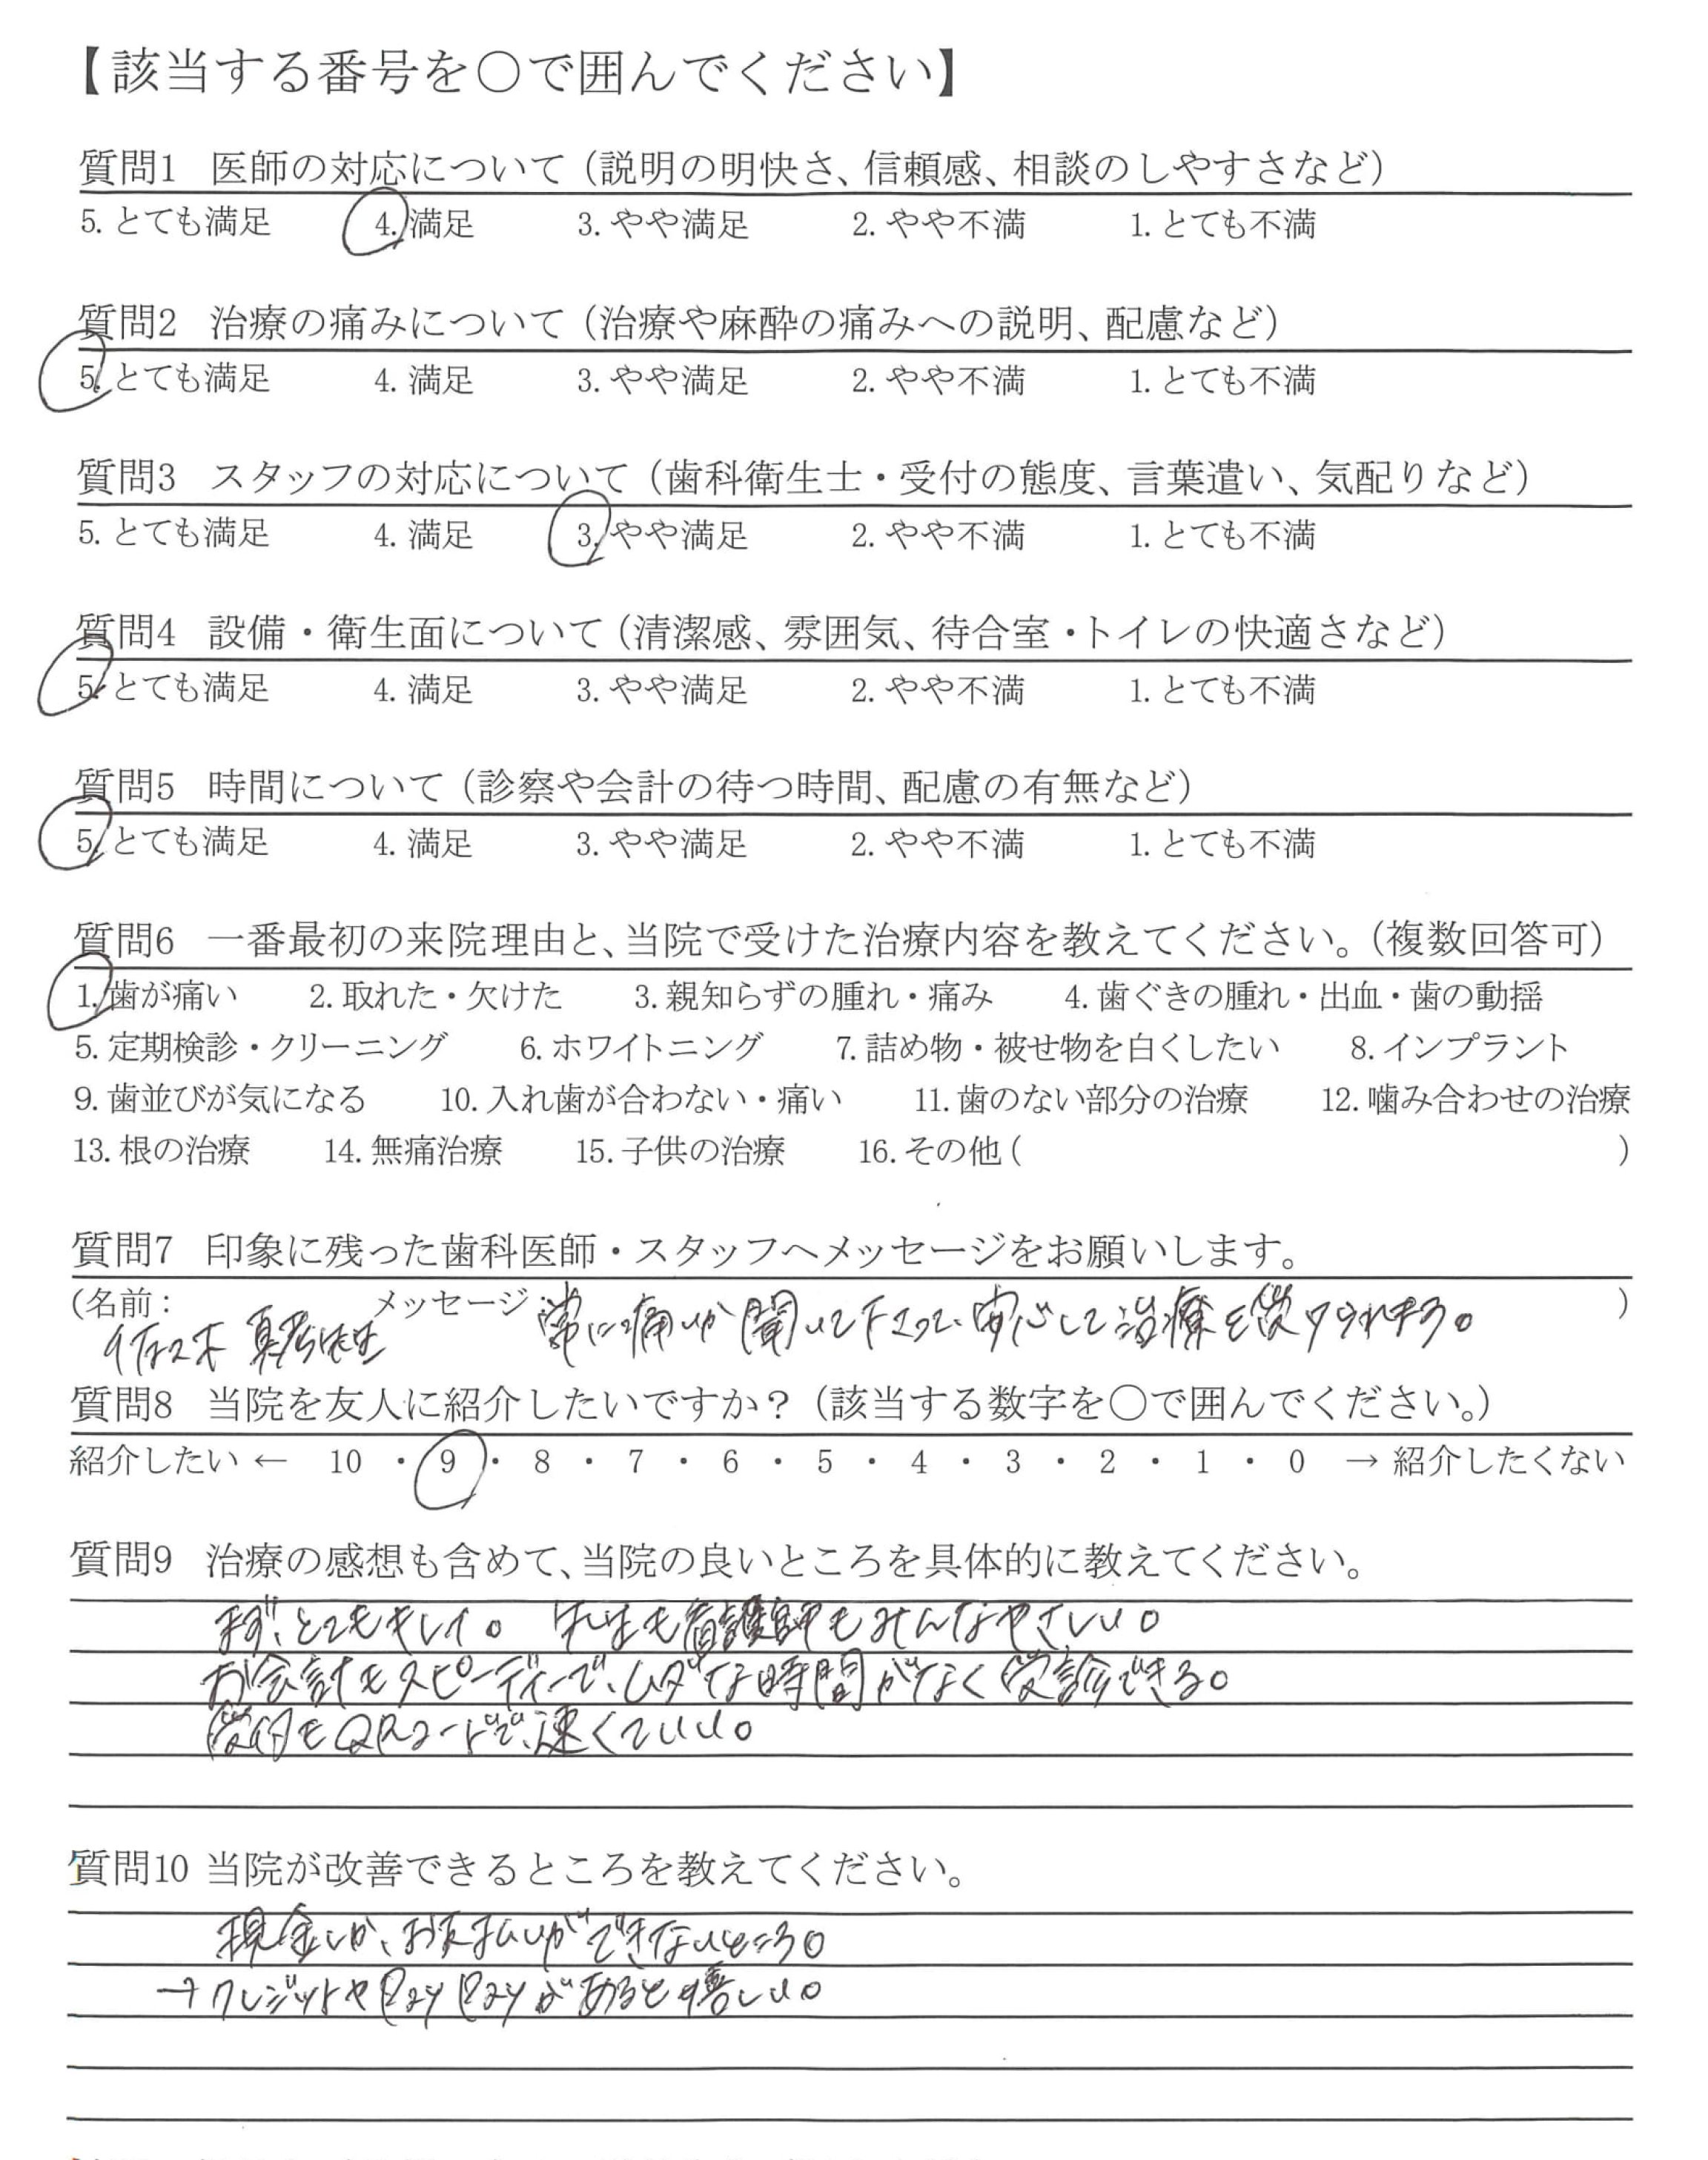 【該当する番号を〇で囲んでください】
質問1 医師の対応について（説明の明快さ、信頼感、相談のしやすさなど）
5. とても満足 4. 満足 3. やや満足 2. やや不満 1. とても不満
質問2 治療の痛みについて（治療や麻酔の痛みへの説明、配慮など）
5. とても満足 4. 満足 3. やや満足 2. やや不満 1. とても不満
質問3 スタッフの対応について（歯科衛生士・受付の態度、言葉遣い、気配りなど）
5. とても満足 4. 満足 3. やや満足 2. やや不満 1. とても不満
質問4 設備・衛生面について（清潔感、雰囲気、待合室・トイレの快適さなど）
5. とても満足 4. 満足 3. やや満足 2. やや不満 1. とても不満
質問5 時間について（診察や会計の待つ時間、配慮の有無など）
5. とても満足 4. 満足 3. やや満足 2. やや不満 1. とても不満
質問6 一番最初の来院理由と、当院で受けた治療内容を教えてください。（複数回答可）
1. 歯が痛い 2. 取れた・欠けた 3. 親知らずの腫れ・痛み 4. 歯ぐきの腫れ・出血・歯の動揺
5. 定期検診・クリーニング 6. ホワイトニング 7. 詰め物・被せ物を白くしたい 8. インプラント
9. 歯並びが気になる 10. 入れ歯が合わない・痛い 11. 歯のない部分の治療 12. 噛み合わせの治療
13. 根の治療 14. 無痛治療 15. 子供の治療 16. その他（ ）
質問7 印象に残った歯科医師・スタッフへメッセージをお願いします。
（名前： メッセージ： ）
佐々木 先生 常に痛いか聞いて下さって、安心して治療を受けられます。
質問8 当院を友人に紹介したいですか？（該当する数字を〇で囲んでください。）
紹介したい ← 10 ・ 9 ・ 8 ・ 7 ・ 6 ・ 5 ・ 4 ・ 3 ・ 2 ・ 1 ・ 0 → 紹介したくない
質問9 治療の感想も含めて、当院の良いところを具体的に教えてください。
まず、とてもキレイ。 先生も看護師もみんなやさしい。
お会計もスピーディーで、ムダな時間がなく受診できる。
受付もQRコードで、速くていい。
質問10 当院が改善できるところを教えてください。
現金しか、お支払いができないところ。
→クレジットやPayPayがあると嬉しい。